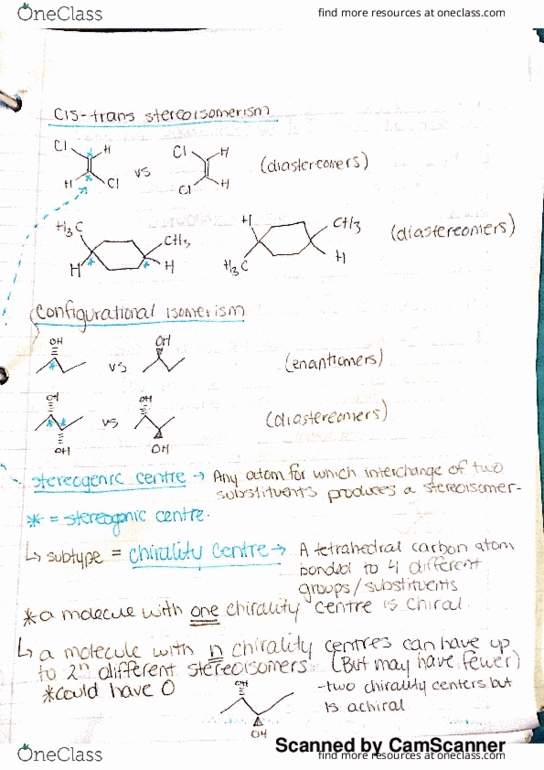 OneClass
find more resources at oneclass.com
Cis-trans stereoisomerism
Cl H Cl H
vs (diastereomers)
H Cl Cl H
H3C H CH3
CH3 (diastereomers)
H H H3C H
Configurational isomerism
OH OH
vs (enantiomers)
OH OH
vs (diastereomers)
OH OH
stereogenic centre → Any atom for which interchange of two
substituents produces a stereoisomer.
* = stereogenic centre.
↳ subtype = chirality centre → A tetrahedral carbon atom
bonded to 4 different
groups/substituents
*a molecule with one chirality centre is chiral.
↳ a molecule with n chirality centres can have up
to 2^n different stereoisomers (But may have fewer)
*could have 0
OH
-two chirality centers but
is achiral
OH
Scanned by CamScanner
OneClass
find more resources at oneclass.com